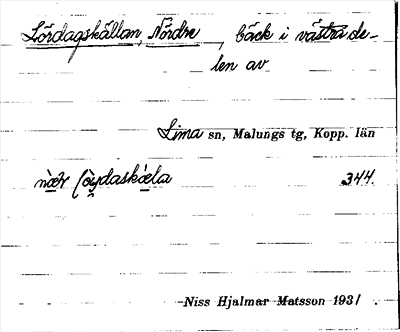 Lördagskällan, Nördre, bäck i västra de-
len av
Lima sn, Malungs tg, Kopp. län
344.
-Niss Hjalmar Matsson 1931.